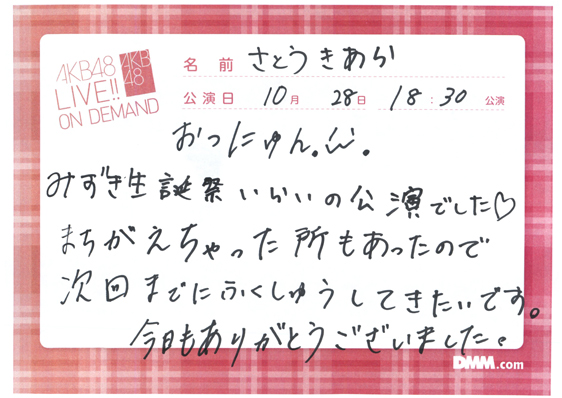 AKB48
LIVE!!
ON DEMAND
AKB
48
名前 さとうきあら
公演日 10月 28日 18:30 公演
おっにゅん。
みずき生誕祭いらいの公演でした♡
まちがえちゃった所もあったので
次回までにふくしゅうしてきたいです。
今日もありがとうございました。
DMM.com